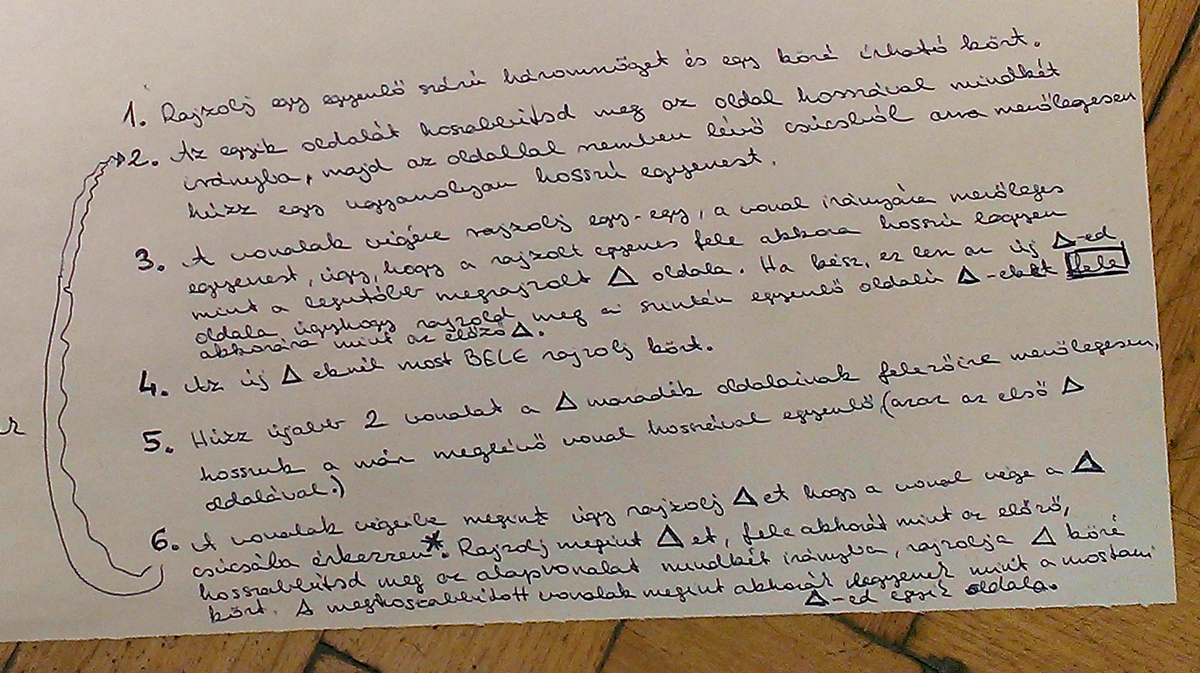 1. Rajzolj egy egyenlő szárú háromszöget és egy köré írható kört.
2. Az egyik oldalát hosszabbítsd meg az oldal hosszával mindkét
irányba, majd az oldallal szemben lévő csúcsból arra merőlegesen
húzz egy ugyanolyan hosszú egyenest.
3. A vonalak végére rajzolj egy-egy, a vonal irányára merőleges
egyenest, úgy, hogy a rajzolt egyenes fele akkora hosszú legyen
mint a legutóbb megrajzolt △ oldala. Ha kész, ez lesz az új △-ed
oldala úgyhogy rajzold meg a szintén egyenlő oldalú △-eket fele
akkorára mint az előző △.
4. Az új △ eknél most BELE rajzolj kört.
5. Húzz újabb 2 vonalat a △ maradék oldalainak felezőire merőlegesen,
hosszuk a már meglévő vonal hosszával egyenlő, (azaz az első △
oldalával.)
6. A vonalak végeibe megint úgy rajzolj △et hogy a vonal vége a △
csúcsába érkezzen*. Rajzolj megint △ et, fele akkorát mint az előző,
hosszabbítsd meg az alapvonalat mindkét irányba, rajzolja △ köré
kört. A meghosszabbított vonalak megint akkorák legyenek mint a mostani
△-ed egyik oldala.